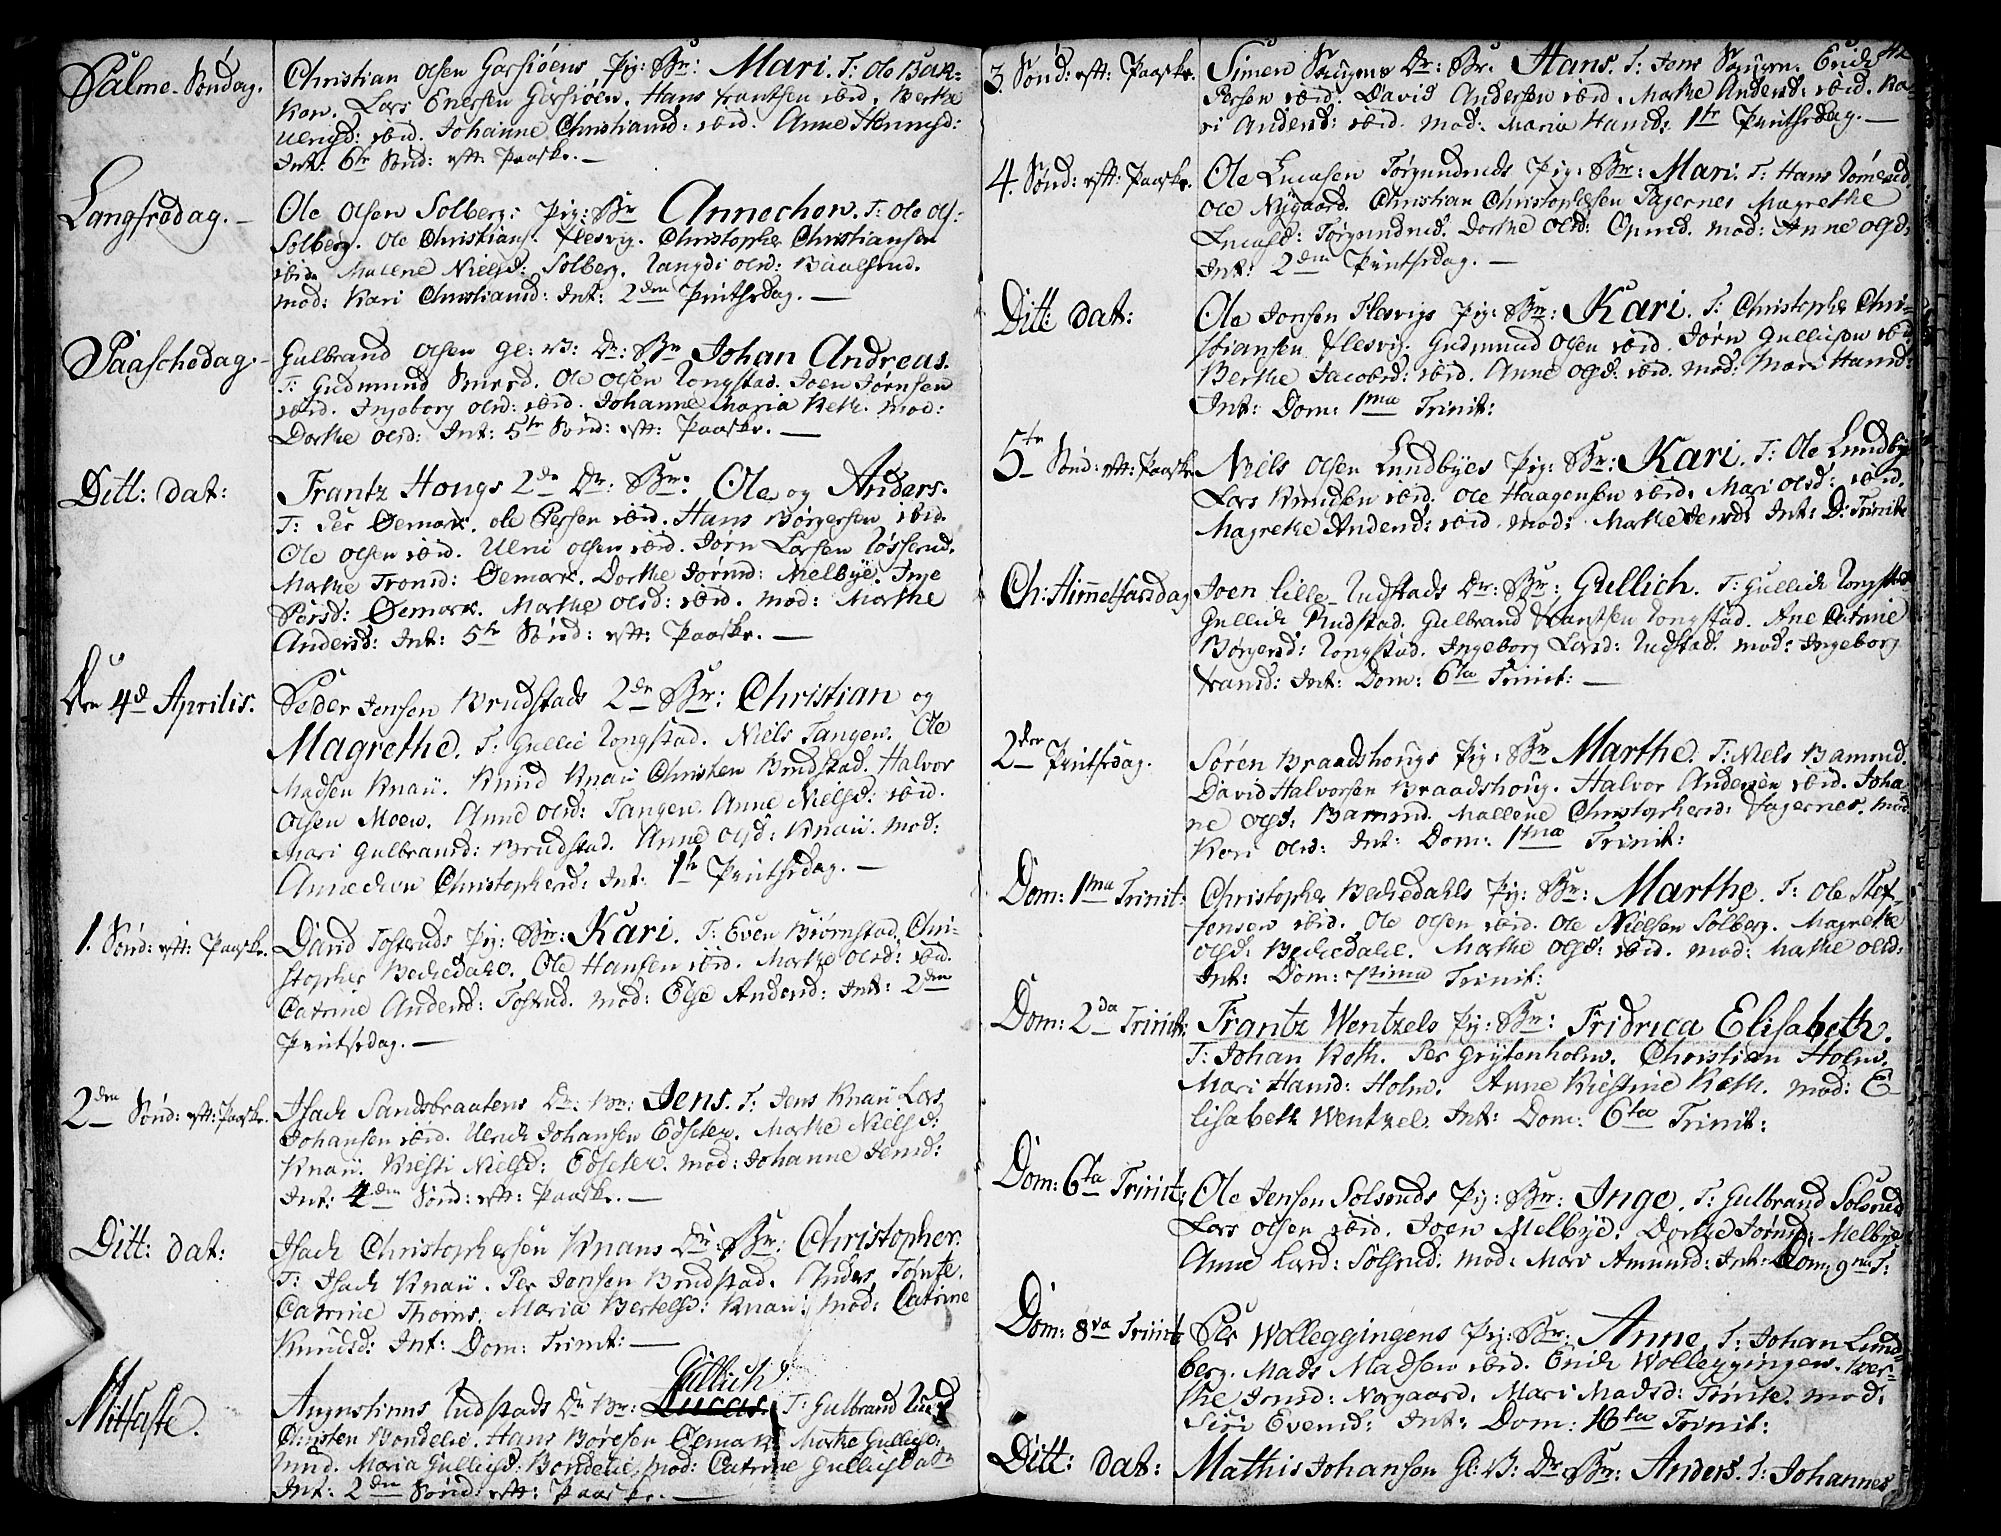 Palme-Søndag.
Christian Olsen Garsiøens Pig: Br: Mari. T: Ole Bak-
ken. Lars Enersen Garsiøen. Hans Frantsen ibid. Berthe
Ulrigsd: ibid. Johanne Christiansd: ibid. Anne Hennigsd:
Int: 6te Sønd: eft: Paaske. —
Langfredag. —
Ole Olsen Solberg: Pig: Br Annechen. T: Ole Ols:
Solberg. Ole Christians: Flesvig. Christopher Christiansen
ibid. Malene Nielsd: Solberg. Olsd: Baalsrud.
mod: Kari Christiansd: Int: 2den Pintsedag. —
Paaschedag. —
Gulbrand Olsen Gl: B: Dr: Br Johan Andreas.
T: Gudmund. Ole Olsen Rongstad. Joen Jørnsen
ibid. Ingeborg Olsd: ibid. Johanne Maria Reth. mod:
Dorthe Olsd: Int: 5te Sønd: eft: Paaske. —
Ditt: dat:
Frantz Hougs 2de Dr: Br: Ole og Anders.
T: Per Øemark. Ole Persen ibid. Hans Børgersen ibid.
Ole Olsen ibid. Ulric Olsen ibid. Jørn Larsen
Marthe Tronsd: Øemark. Dorthe Jørnsd: Melbye. Inge
Persd: Øemark. Marthe Olsd: ibid. mod: Marthe
Andersd: Int: 5te Sønd: eft: Paaske. —
Den 4de Aprilis.
Peder Jensen Brudstads 2de Br: Christian og
Magrethe. T: Gullic Rongstad. Niels Tangen. Ole
Madsen Knaü. Knud Knaü Christen Brudstad. Halvor
Olsen Moen. Anne Olsd: Tangen. Anne Nielsd: ibid.
Mari Gulbransd: Brudstad. Anne Olsd: Knaü. mod:
Annechen Christophersd: Int: 1te Pintsedag. —
1. Sønd: eft: Paaske.
David Tosteruds Pig: Br: Kari. T: Even Biørnstad. Chri-
stopher Bechedahl. Ole Hansen ibid. Marthe Olsd: ibid.
Catrine Andersd: Tosterud. mod: Else Andersd: Int: 2den
Pintsedag. —
2den Sønd: eft: Paaske.
Isach Sandsbraatens Dr: Br: Jens. T: Jens Knaü Lars
Johansen ibid. Ulrich Johansen Edseter. Marthe Nielsd:
Knaü. Kiesti Nielsd: Edseter. mod: Johanne Jensd:
Int: 4den Sønd: eft: Paaske. —
Ditt: dat:
Isach Christophersen Knaus Dr: Br: Christopher.
T: Isach Knaü. Per Jonsen Brudstad. Anders Tomte.
Catrine Thoms. Maria Bertelsd: Knaü. mod: Catrine
Knudsd: Int: Dom: Trinit: —
Mitfaste.
Gullich
Augustinus Rudstads Dr: Br: Lucas. T: Gulbrand Rud
Christen Bondelie. Hans Børesen Øemark Marthe Gullics:
Maria Gullicsd: Bondelie. mod: Catrine Gullicsdatr
Int: 2den Sønd: eft: Paaske. —
3. Sønd: eft: Paaske.
Simen Saugens Dr: Br. Hans. T: Jens Saugen. Erich
Persen ibid. David Andersen ibid. Marthe Andersd: ibid. Ka-
ri Andersd: ibid. mod: Maria Hansd: 1te Pintsedag. —
4. Sønd: eft: Paaske.
Ole Lucasen Tørgundruds Pig: Br: Mari. T: Hans
Ole Nygaard. Christian Christophersen Fagernes Magrethe
Lucasd: Dorthe Olsd: Opsed. mod: Anne Olsd:
Int: 2den Pintsedag. —
Ditt: dat:
Ole Jonsen Flesvigs Pig: Br: Kari. T: Christopher Chri-
stiansen Flesvig. Gudmund Olsen ibid. Jørn Gullicsen ibid
Berthe Jacobsd: ibid. Anne Olsd: ibid. mod: Mari Hansd:
Int: Dom: 1ma Trinit:
5te Sønd: eft: Paaske
Niels Olsen Lundbyes Pig: Br: Kari. T: Ole Lundby
Lars Knudsen ibid. Ole Haagensen ibid. Mari Olsd: ibid.
Magrethe Andersd: ibid. mod: Marthe Jensd: Int: D: Trinit:
Ch: Himmelfarsdag
Joen Lille-Rudstads Dr: Br: Gullich. T: Gullich Rongsted
Gullich Rudstad. Gulbrand Frantsen Rongstad. Ane Catrine
Børgersd: Rongstad. Ingeborg Larsd: Rudstad. mod: Ingeborg
Fransd: Int: Dom: 6ta Trinit: —
2den Pintsedag.
Søren Braadshougs Pig: Br Marthe. T: Niels Bamrud.
David Halvorsen Braadshoug. Halvor Andersen ibid. Johan-
ne Olsd: Bamrud. Mallene Christophersd: Fagernes. mod
Kari Olsd: Int: Dom: 1ma Trinit:
Dom: 1ma Trinit:
Christopher Bechedahls Pig: Br: Marthe. T: Ole Stef-
fensen ibid. Ole Olsen ibid. Ole Nielsen Solberg. Magrethe
Olsd: Bechedahl. Marthe Olsd: ibid. mod: Marthe Olsd:
Int: Dom: 7tima Trinit:
Dom: 2da Trinit:
Frantz Wentzels Pig: Br: Fridrica Elisabeth.
T: Johan Reth. Per Grytenholm. Christian Holm.
Mari Hansd: Holm. Anne Kiestine Reth. mod: E-
lisabeth Wentzel. Int: Dom: 6ta Trinit:
Dom: 6ta Trinit:
Ole Jensen Solsruds Pig: Br: Inge. T: Gulbrand Solsrud
Lars Olsen ibid. Joen Melbye. Dorthe Jørnsd: Melbye
Anne Larsd: Solsrud. mod: Mari Amunsd: Int: Dom: 9na T:
Dom: 8va Trinit
Per Wolleggingens Pig: Br: Anne. T: Johan Lund-
berg. Mads Madsen ibid. Erich Wolleggingen. Ber-
the Jensd: Norgaard. Mari Madsd: Tomte. mod:
Siri Evensd: Int: Dom: 16ta Trinit:
Ditt: dat:
Mathis Johansen Gl: B: Dr: Br: Anders. T: Johannes